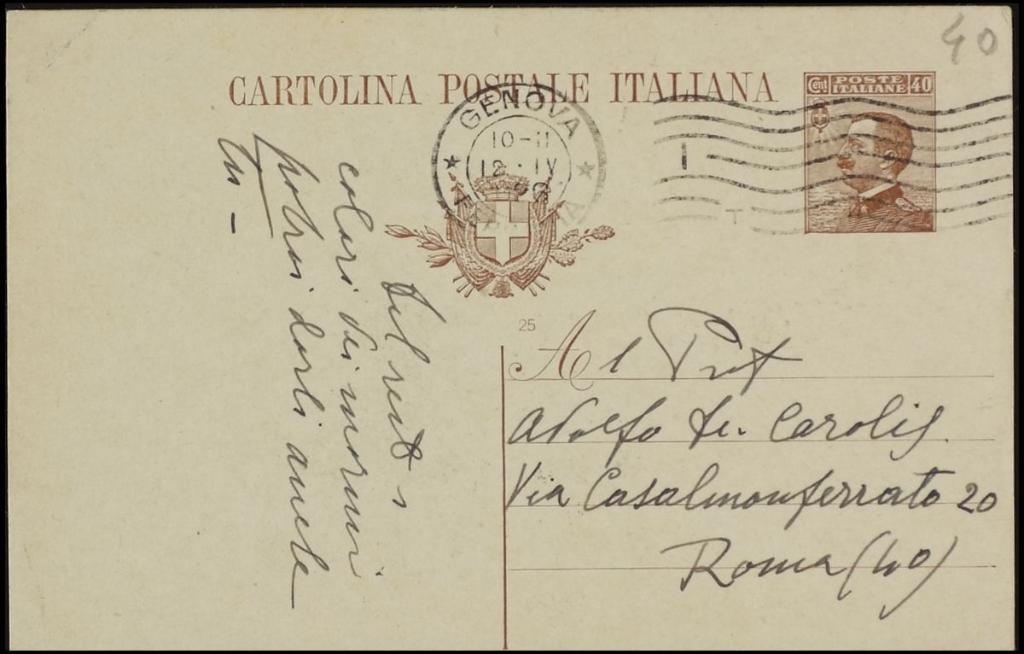 40
CARTOLINA POSTALE ITALIANA
Cmi POSTE ITALIANE 40
GENOVA
10-11
12 · IV
25
Al Prof
Adolfo de Carolis
Via Casalmonferrato 20
Roma (40)
Del resto i
colori dei marmi
potrai darli anche
tu -